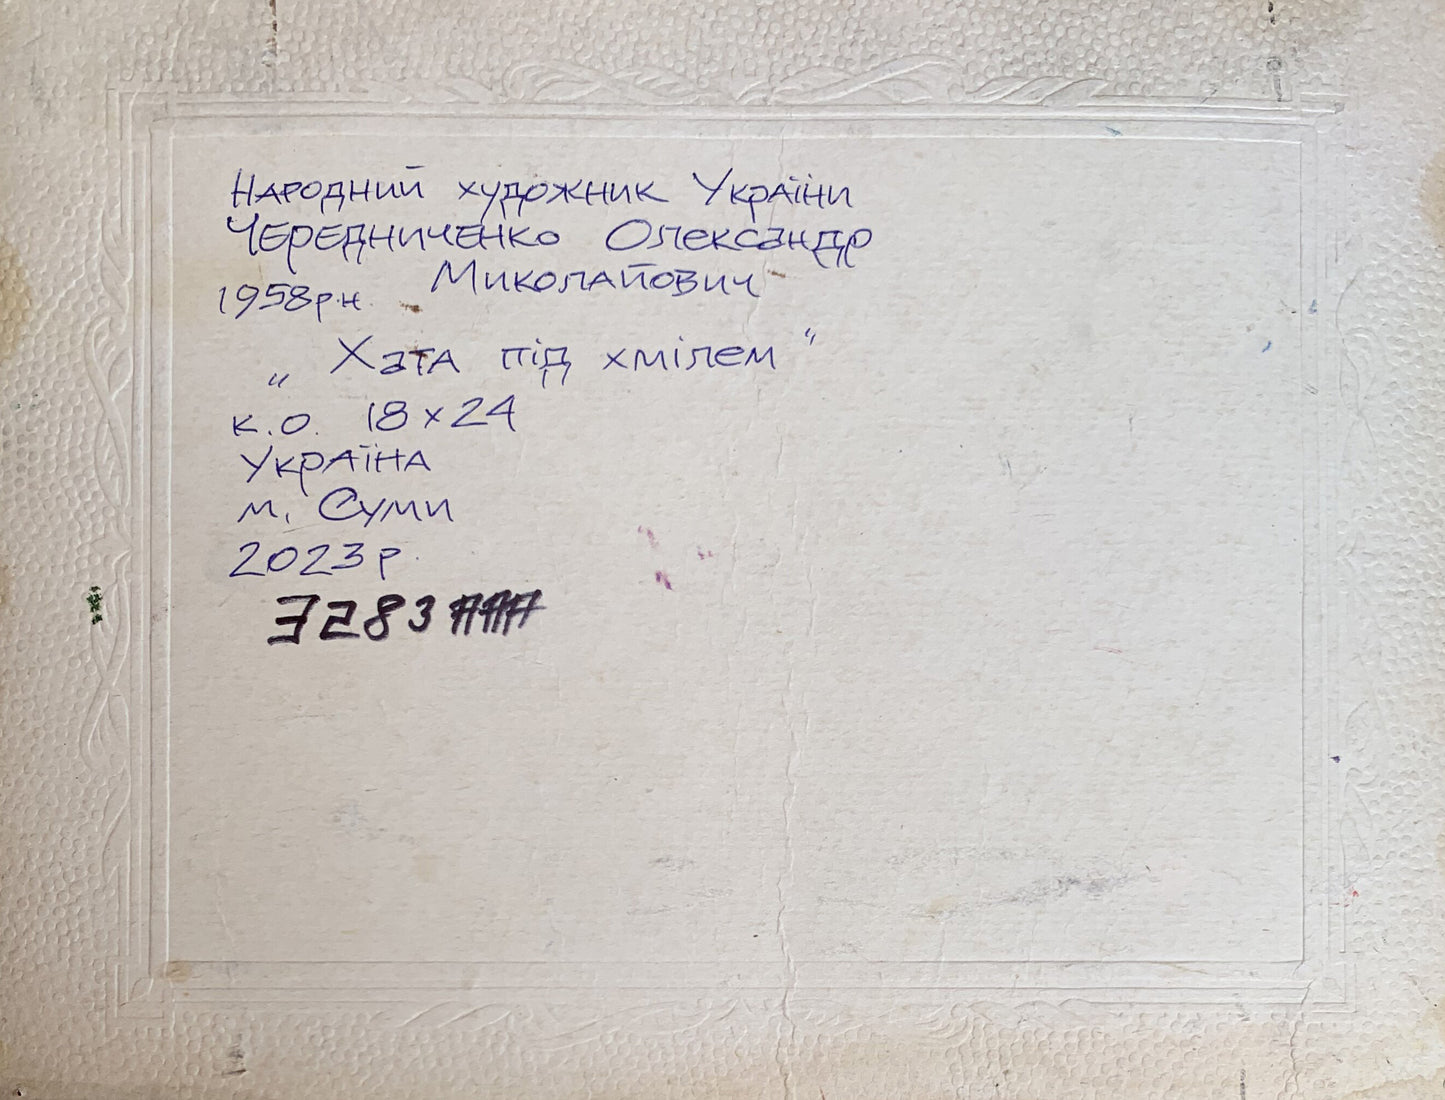 Народний художник України
Чередниченко Олександр
Миколайович
1958р.н.
„Хата під хмілем"
к.о. 18х24
Україна
м. Суми
2023р.